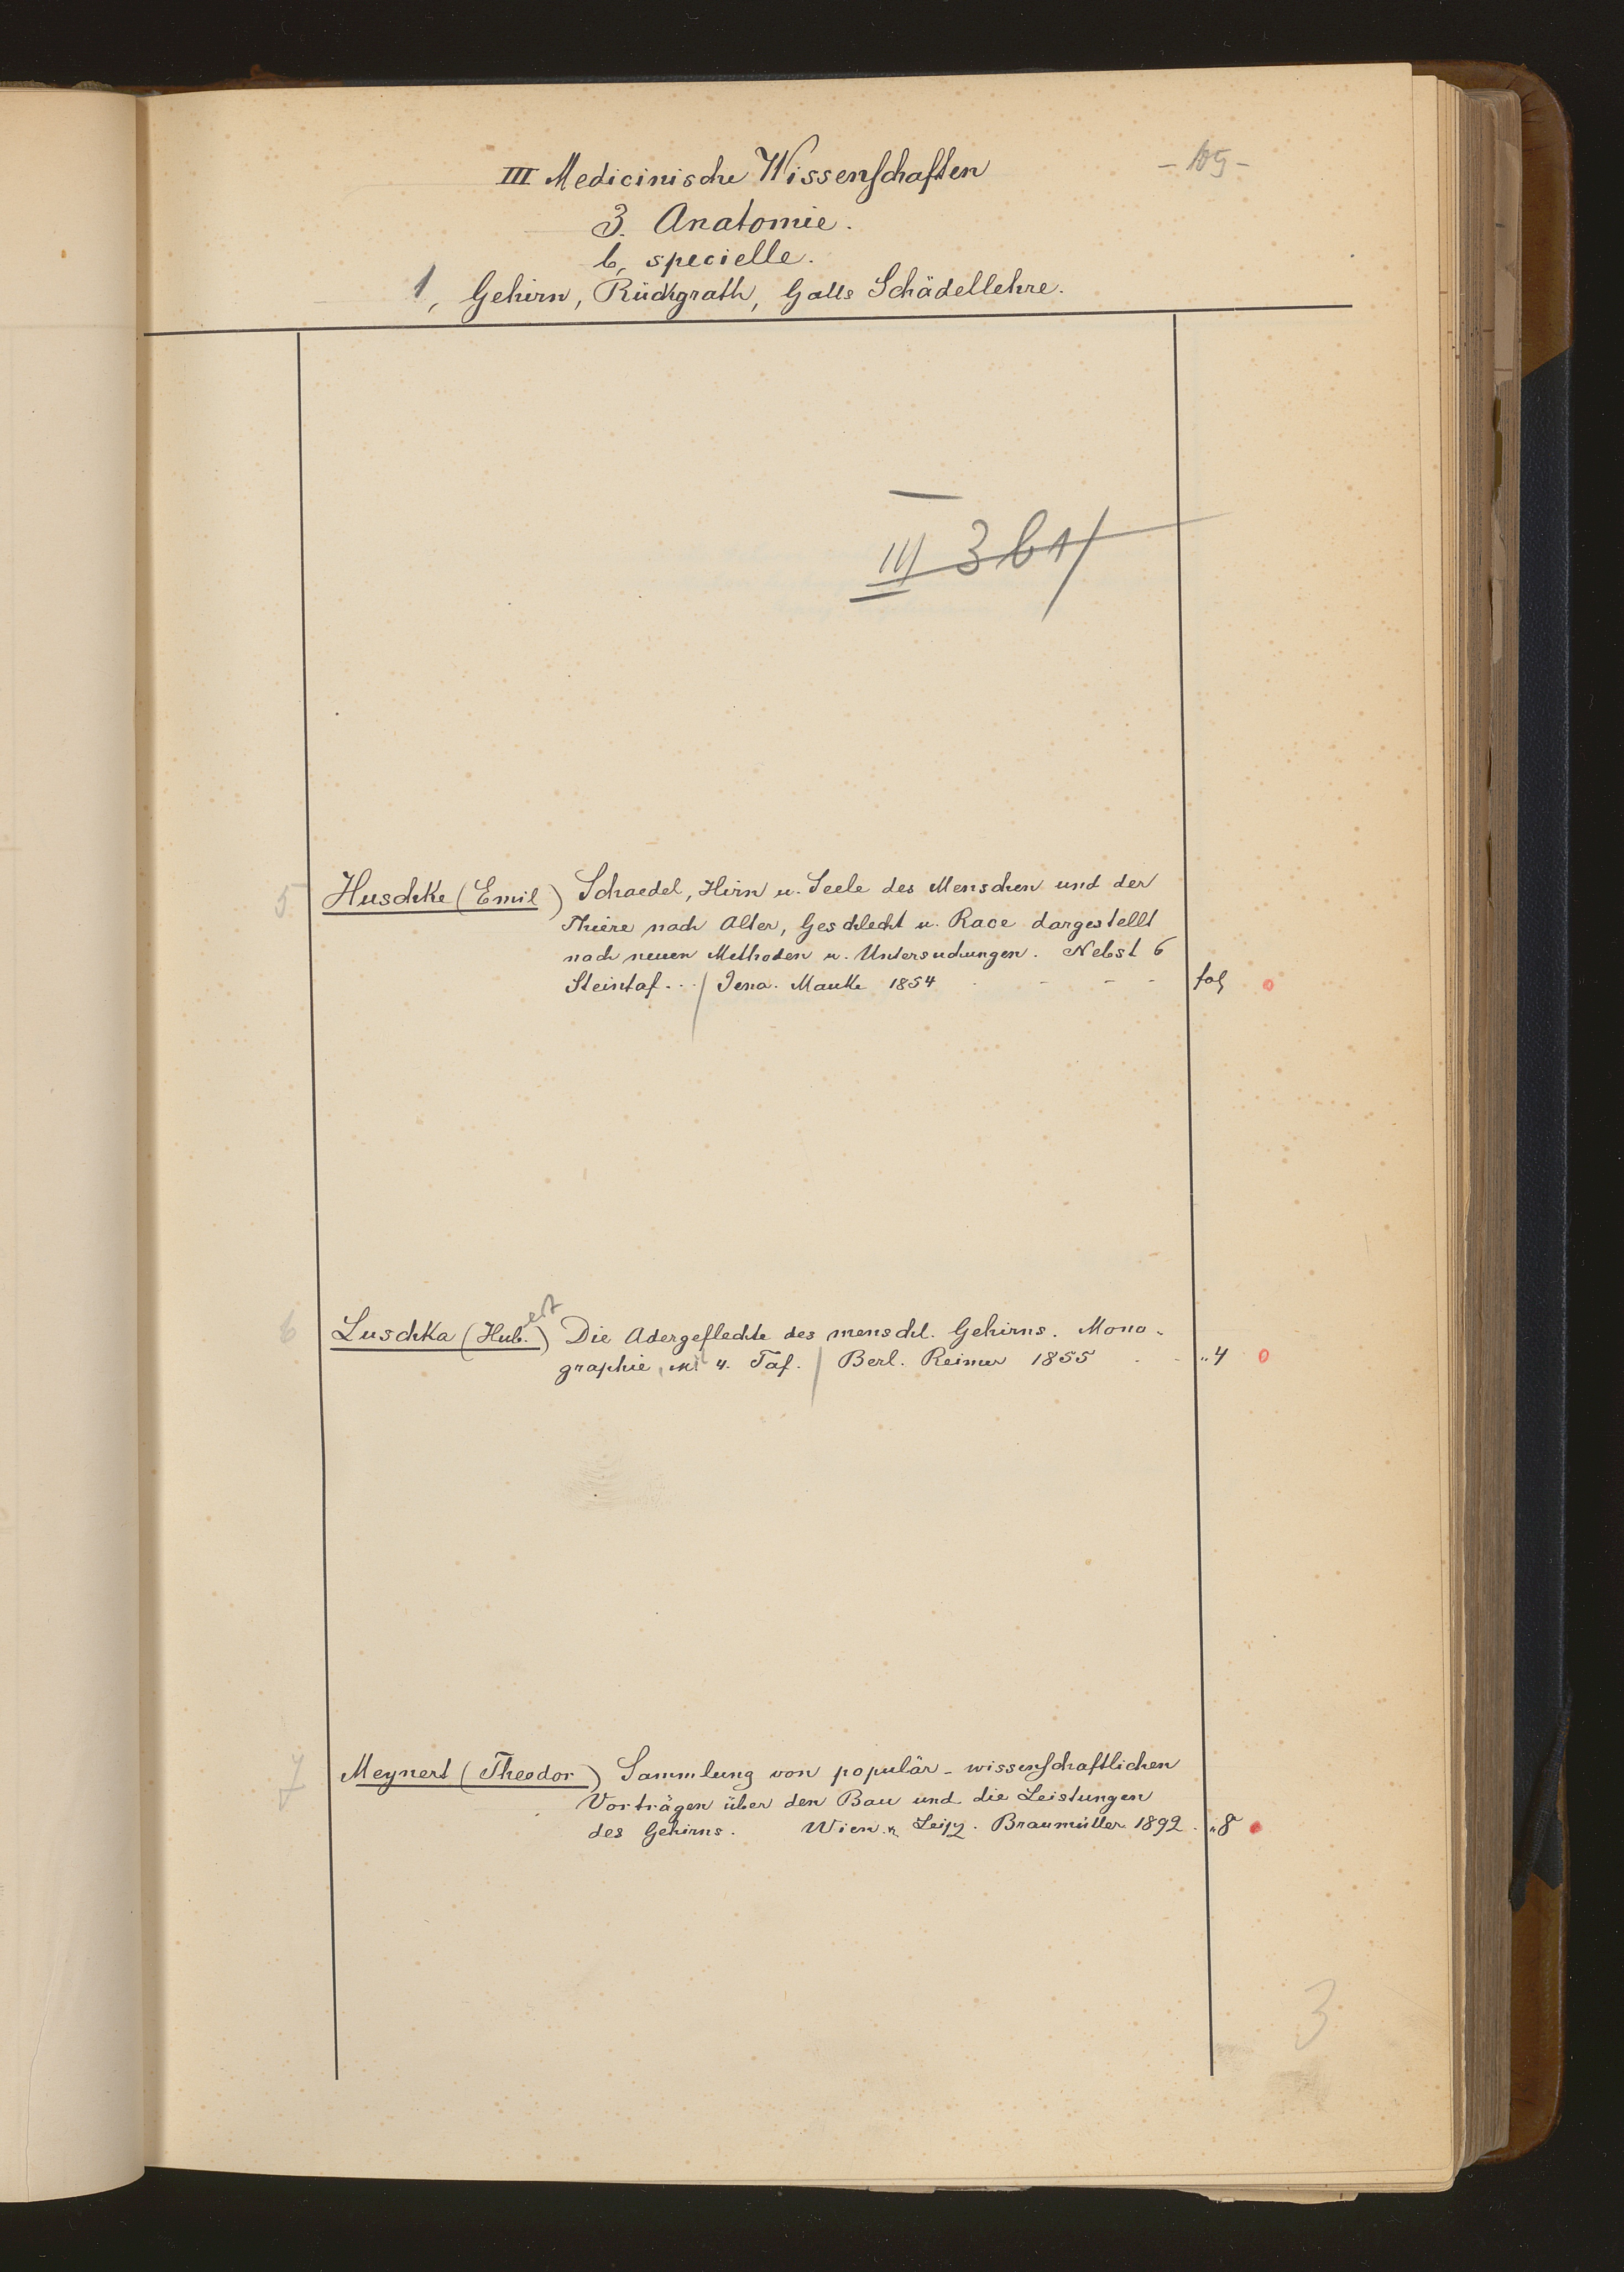 - 105 -
III Medicinische Wissenschaften
3. Anatomie.
b, specielle.
1, Gehirn, Rückgrath, Galls Schädellehre.
III 3 b 1/
5. Huschke (Emil) Schaedel, Hirn u. Seele des Menschen und der
Thiere nach Alter, Geschlecht u. Race dargestellt
nach neuen Methoden u. Untersuchungen. Nebst 6
Steintaf. . . / Jena. Mauke 1854 - - - - fol o
6 Luschka (Hub. ert) Die Adergeflechte des menschl. Gehirns. Mono-
graphie, mit 4. Taf. / Berl. Reimer 1855 . - „ 4 o
7 Meynert (Theodor) Sammlung von populär-wissenschaftlichen
Vorträgen über den Bau und die Leistungen
des Gehirns. Wien u. Leipz. Braumüller 1892. „ 8
3